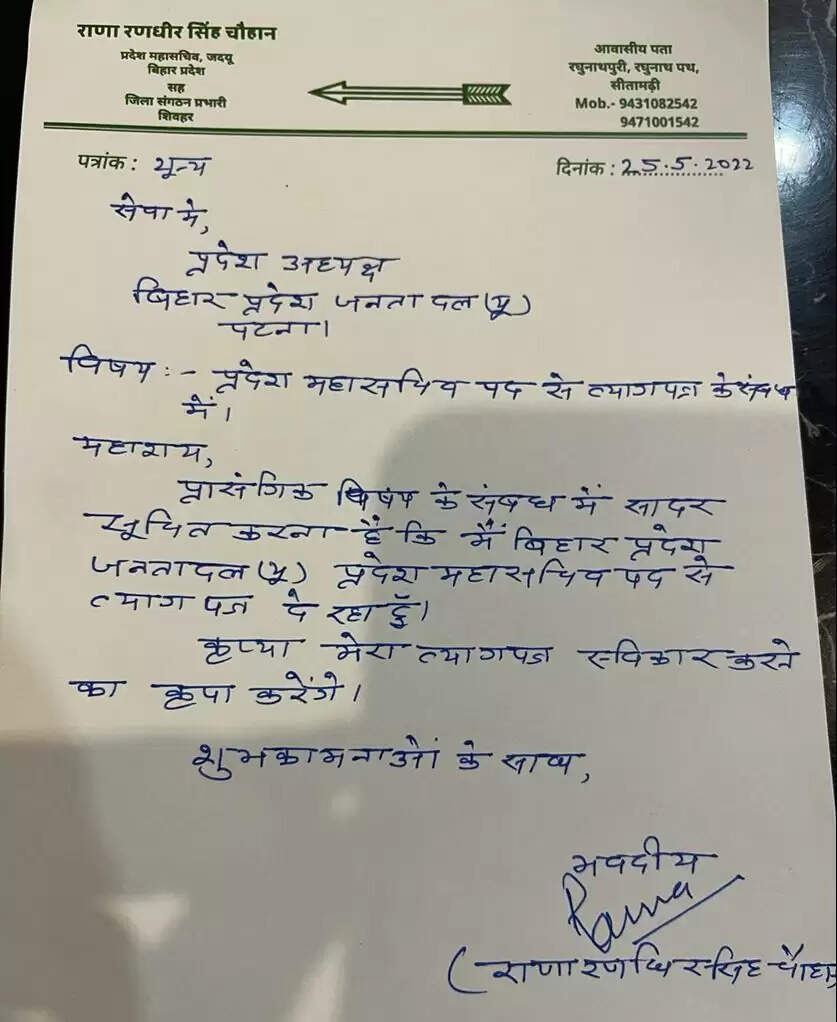 राणा रणधीर सिंह चौहान
प्रदेश महासचिव, जदयू
बिहार प्रदेश
सह
जिला संगठन प्रभारी
शिवहर
आवासीय पता
रघुनाथपुरी, रघुनाथ पथ,
सीतामढ़ी
Mob.- 9431082542
9471001542
पत्रांक : शून्य
दिनांक : 25.5.2022
सेवा मे,
प्रदेश अध्यक्ष
बिहार प्रदेश जनता दल (यू)
पटना।
विषय :- प्रदेश महासचिव पद से त्यागपत्र के संबंध
में।
महाशय,
प्रासंगिक विषय के संबंध में सादर
सूचित करना है कि मैं बिहार प्रदेश
जनतादल (यू) प्रदेश महासचिव पद से
त्याग पत्र दे रहा हूँ।
कृप्या मेरा त्यागपत्र स्विकार करने
का कृपा करेंगे।
शुभकामनाओं के साथ,
भवदीय
Rana
(राणा रणधिर सिंह चौहा